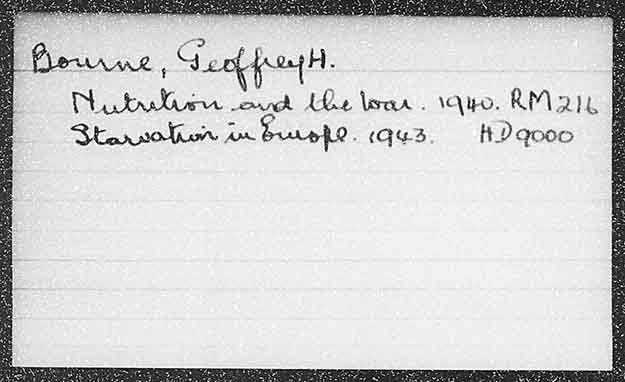 Bourne, Geoffrey H.
Nutrition and the War. 1940. RM216
Starvation in Europe. 1943. HD9000